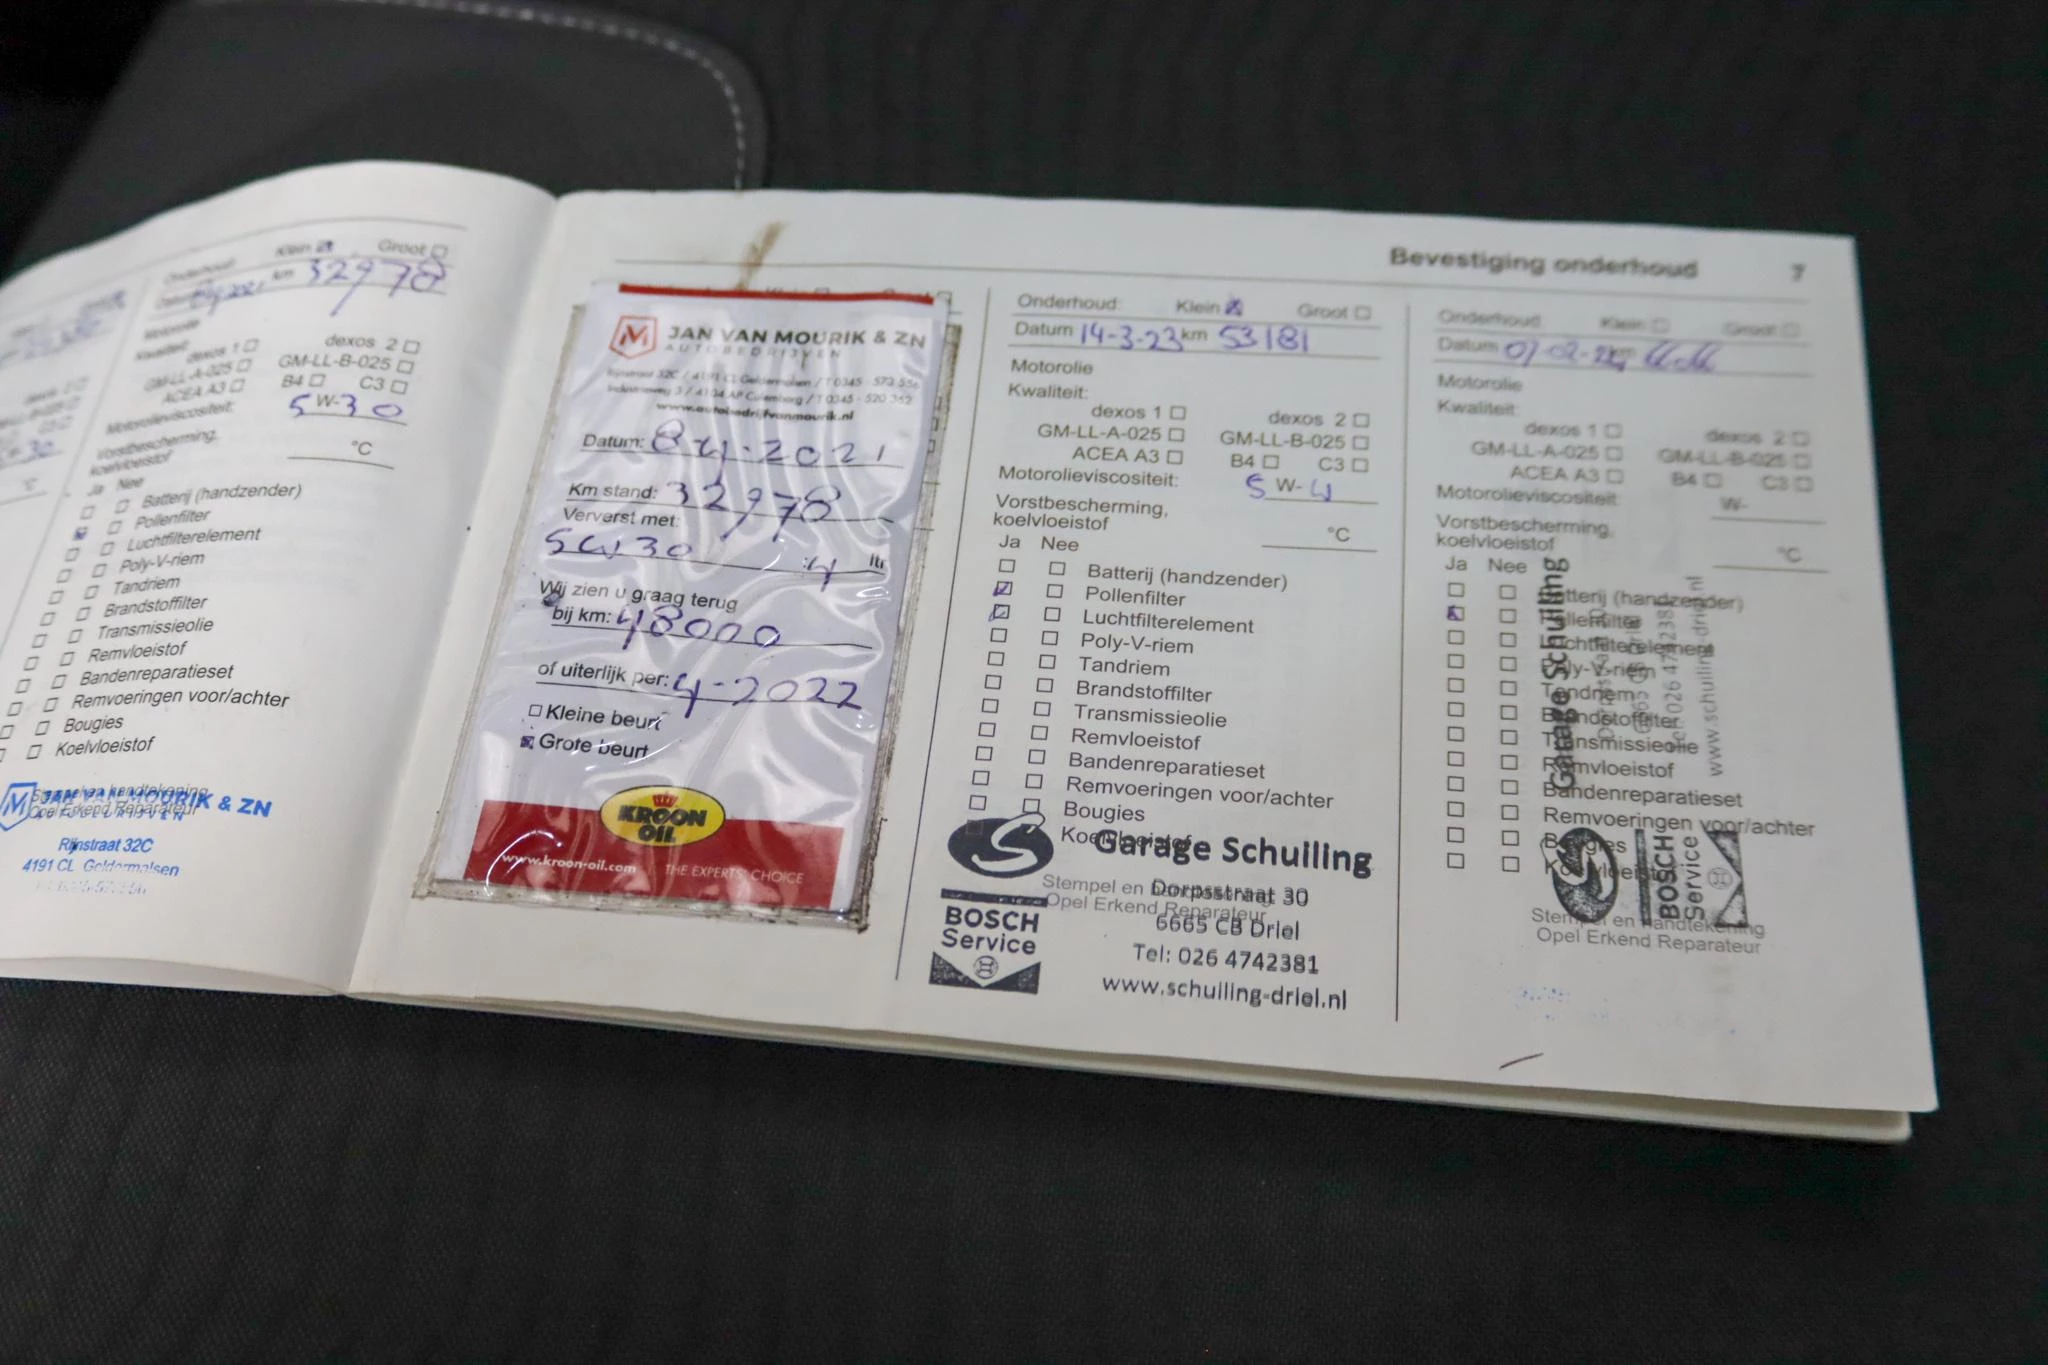 Onderhoud: Klein Groot
Datum km 32978
Motorolie
Kwaliteit:
dexos 1 dexos 2
GM-LL-A-025 GM-LL-B-025
ACEA A3 B4 C3
Motorolieviscositeit: 5 W-30
Vorstbescherming,
koelvloeistof °C
Ja Nee
Batterij (handzender)
Pollenfilter
Luchtfilterelement
Poly-V-riem
Tandriem
Brandstoffilter
Transmissieolie
Remvloeistof
Bandenreparatieset
Remvoeringen voor/achter
Bougies
Koelvloeistof
Stempel en handtekening
Opel Erkend Reparateur
JAN VAN MOURIK & ZN
AUTOBEDRIJVEN
Rijnstraat 32C
4191 CL Geldermalsen
JAN VAN MOURIK & ZN
AUTOBEDRIJVEN
Rijnstraat 32C / 4191 CL Geldermalsen / T 0345 - 573 556
Industrieweg 3 / 4104 AP Culemborg / T 0345 - 520 362
www.autobedrijfvanmourik.nl
Datum: 8-4-2021
Km stand: 32978
Ververst met:
5W30 :4 ltr
Wij zien u graag terug
bij km: 48000
of uiterlijk per: 4-2022
Kleine beurt
Grote beurt
KROON
OIL
www.kroon-oil.com THE EXPERTS' CHOICE
Bevestiging onderhoud 7
Onderhoud: Klein Groot
Datum 14-3-23 km 53181
Motorolie
Kwaliteit:
dexos 1 dexos 2
GM-LL-A-025 GM-LL-B-025
ACEA A3 B4 C3
Motorolieviscositeit: 5 W-4
Vorstbescherming,
koelvloeistof °C
Ja Nee
Batterij (handzender)
Pollenfilter
Luchtfilterelement
Poly-V-riem
Tandriem
Brandstoffilter
Transmissieolie
Remvloeistof
Bandenreparatieset
Remvoeringen voor/achter
Bougies
Koelvloeistof
Stempel en handtekening
Opel Erkend Reparateur
S Garage Schuiling
Dorpsstraat 30
6665 CB Driel
Tel: 026 4742381
www.schuiling-driel.nl
BOSCH
Service
Onderhoud: Klein Groot
Datum 07-02-24 km
Motorolie
Kwaliteit:
dexos 1 dexos 2
GM-LL-A-025 GM-LL-B-025
ACEA A3 B4 C3
Motorolieviscositeit: W-
Vorstbescherming,
koelvloeistof °C
Ja Nee
Batterij (handzender)
Pollenfilter
Luchtfilterelement
Poly-V-riem
Tandriem
Brandstoffilter
Transmissieolie
Remvloeistof
Bandenreparatieset
Remvoeringen voor/achter
Bougies
Koelvloeistof
Stempel en handtekening
Opel Erkend Reparateur
Garage Schuiling
www.schuiling-driel.nl
BOSCH
Service